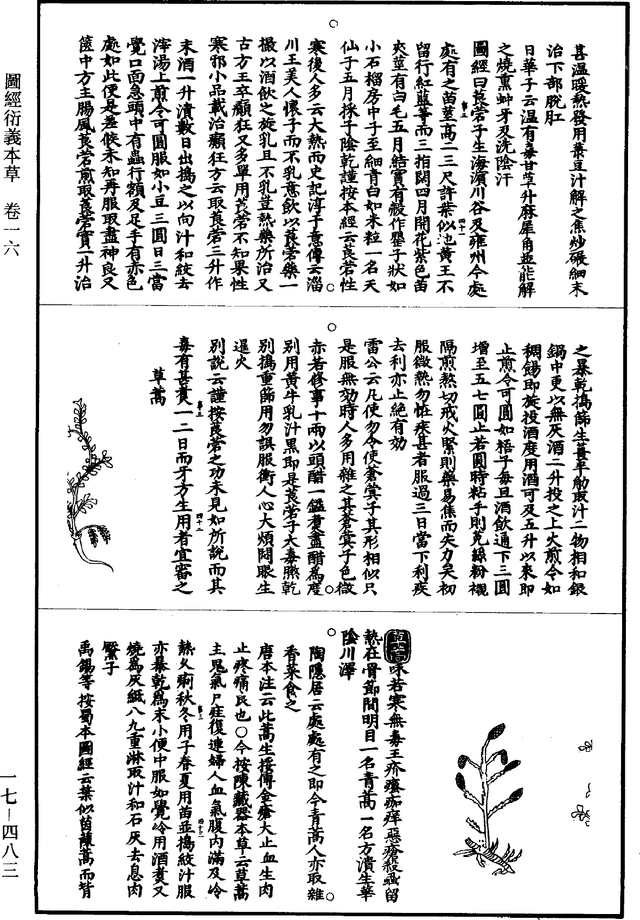 甚溫暖熱發用菉豆汁解之焦炒碾細末
治下部脫肛
日華子云溫有毒甘草升麻犀角並能解
之燒熏蚛牙及洗陰汗
圖經曰莨菪子生海濱川谷及雍州今處
處有之苗莖高二三尺許葉似地黃王不
留行紅藍等而三指闊四月開花紫色苗
夾莖有白毛五月結實有殼作罌子狀如
小石榴房中子至細青白如米粒一名天
仙子五月採子陰乾謹按本經云莨菪性
寒後人多云大熱而史記淳于意傳云淄
川王美人懷子而不乳意飲以莨菪藥一
撮以酒飲之旋乳且不乳豈熱藥所治又
古方主卒顛狂又多單用莨菪不知果性
寒邪小品載治癲狂方云取莨菪三升作
末酒一升漬數日出搗之以向汁和絞去
滓湯上煎令可圓服如小豆三圓日三當
覺口面急頭中有蟲行額及足手有赤色
處如此便是差候未知再服取盡神良又
篋中方主腸風莨菪煎取莨菪實一升治
之暴乾搗篩生薑半觔取汁二物相和銀
鍋中更以無灰酒二升投之上火煎令如
稠餳即旋投酒度用酒可及五升以來即
止煎令可圓如梧子每旦酒飲通下三圓
增至五七圓止若圓時粘手則兔絲粉襯
隔煎熬切戒火緊則藥易焦而失力矣初
服微熱勿怪疾甚者服過三日當下利疾
去利亦止絕有効
雷公云凡使勿令使蒼蓂子其形相似只
是服無効時人多用雜之其蒼蓂子色微
赤若修事十兩以頭醋一鎰煑盡醋為度
別用黃牛乳汁黑即是莨菪子大毒曬乾
別搗重篩用勿誤服衝人心大煩悶眼生
暹火
別說云謹按莨菪之功未見如所說而其
毒有甚煑一二日而牙方生用者宜審之
草蒿
味苦寒無毒主疥瘙痂痒惡瘡殺蟲留
熱在骨節間明目一名青蒿一名方潰生華
陰川澤
陶隱居云處處有之即今青蒿人亦取雜
香菜食之
唐本注云此蒿生挼傅金瘡大止血生肉
止疼痛良也○今按陳藏器本草云草蒿
主鬼氣尸疰復連婦人血氣腹內滿及冷
熱久痢秋冬用子春夏用苗並搗絞汁服
亦暴乾為末小便中服如覺冷用酒煑又
燒為灰紙八九重淋取汁和石灰去息肉
黶子
禹錫等按蜀本圖經云葉似茵蔯蒿而背
圖經衍義本草 卷一六
一七－四八三